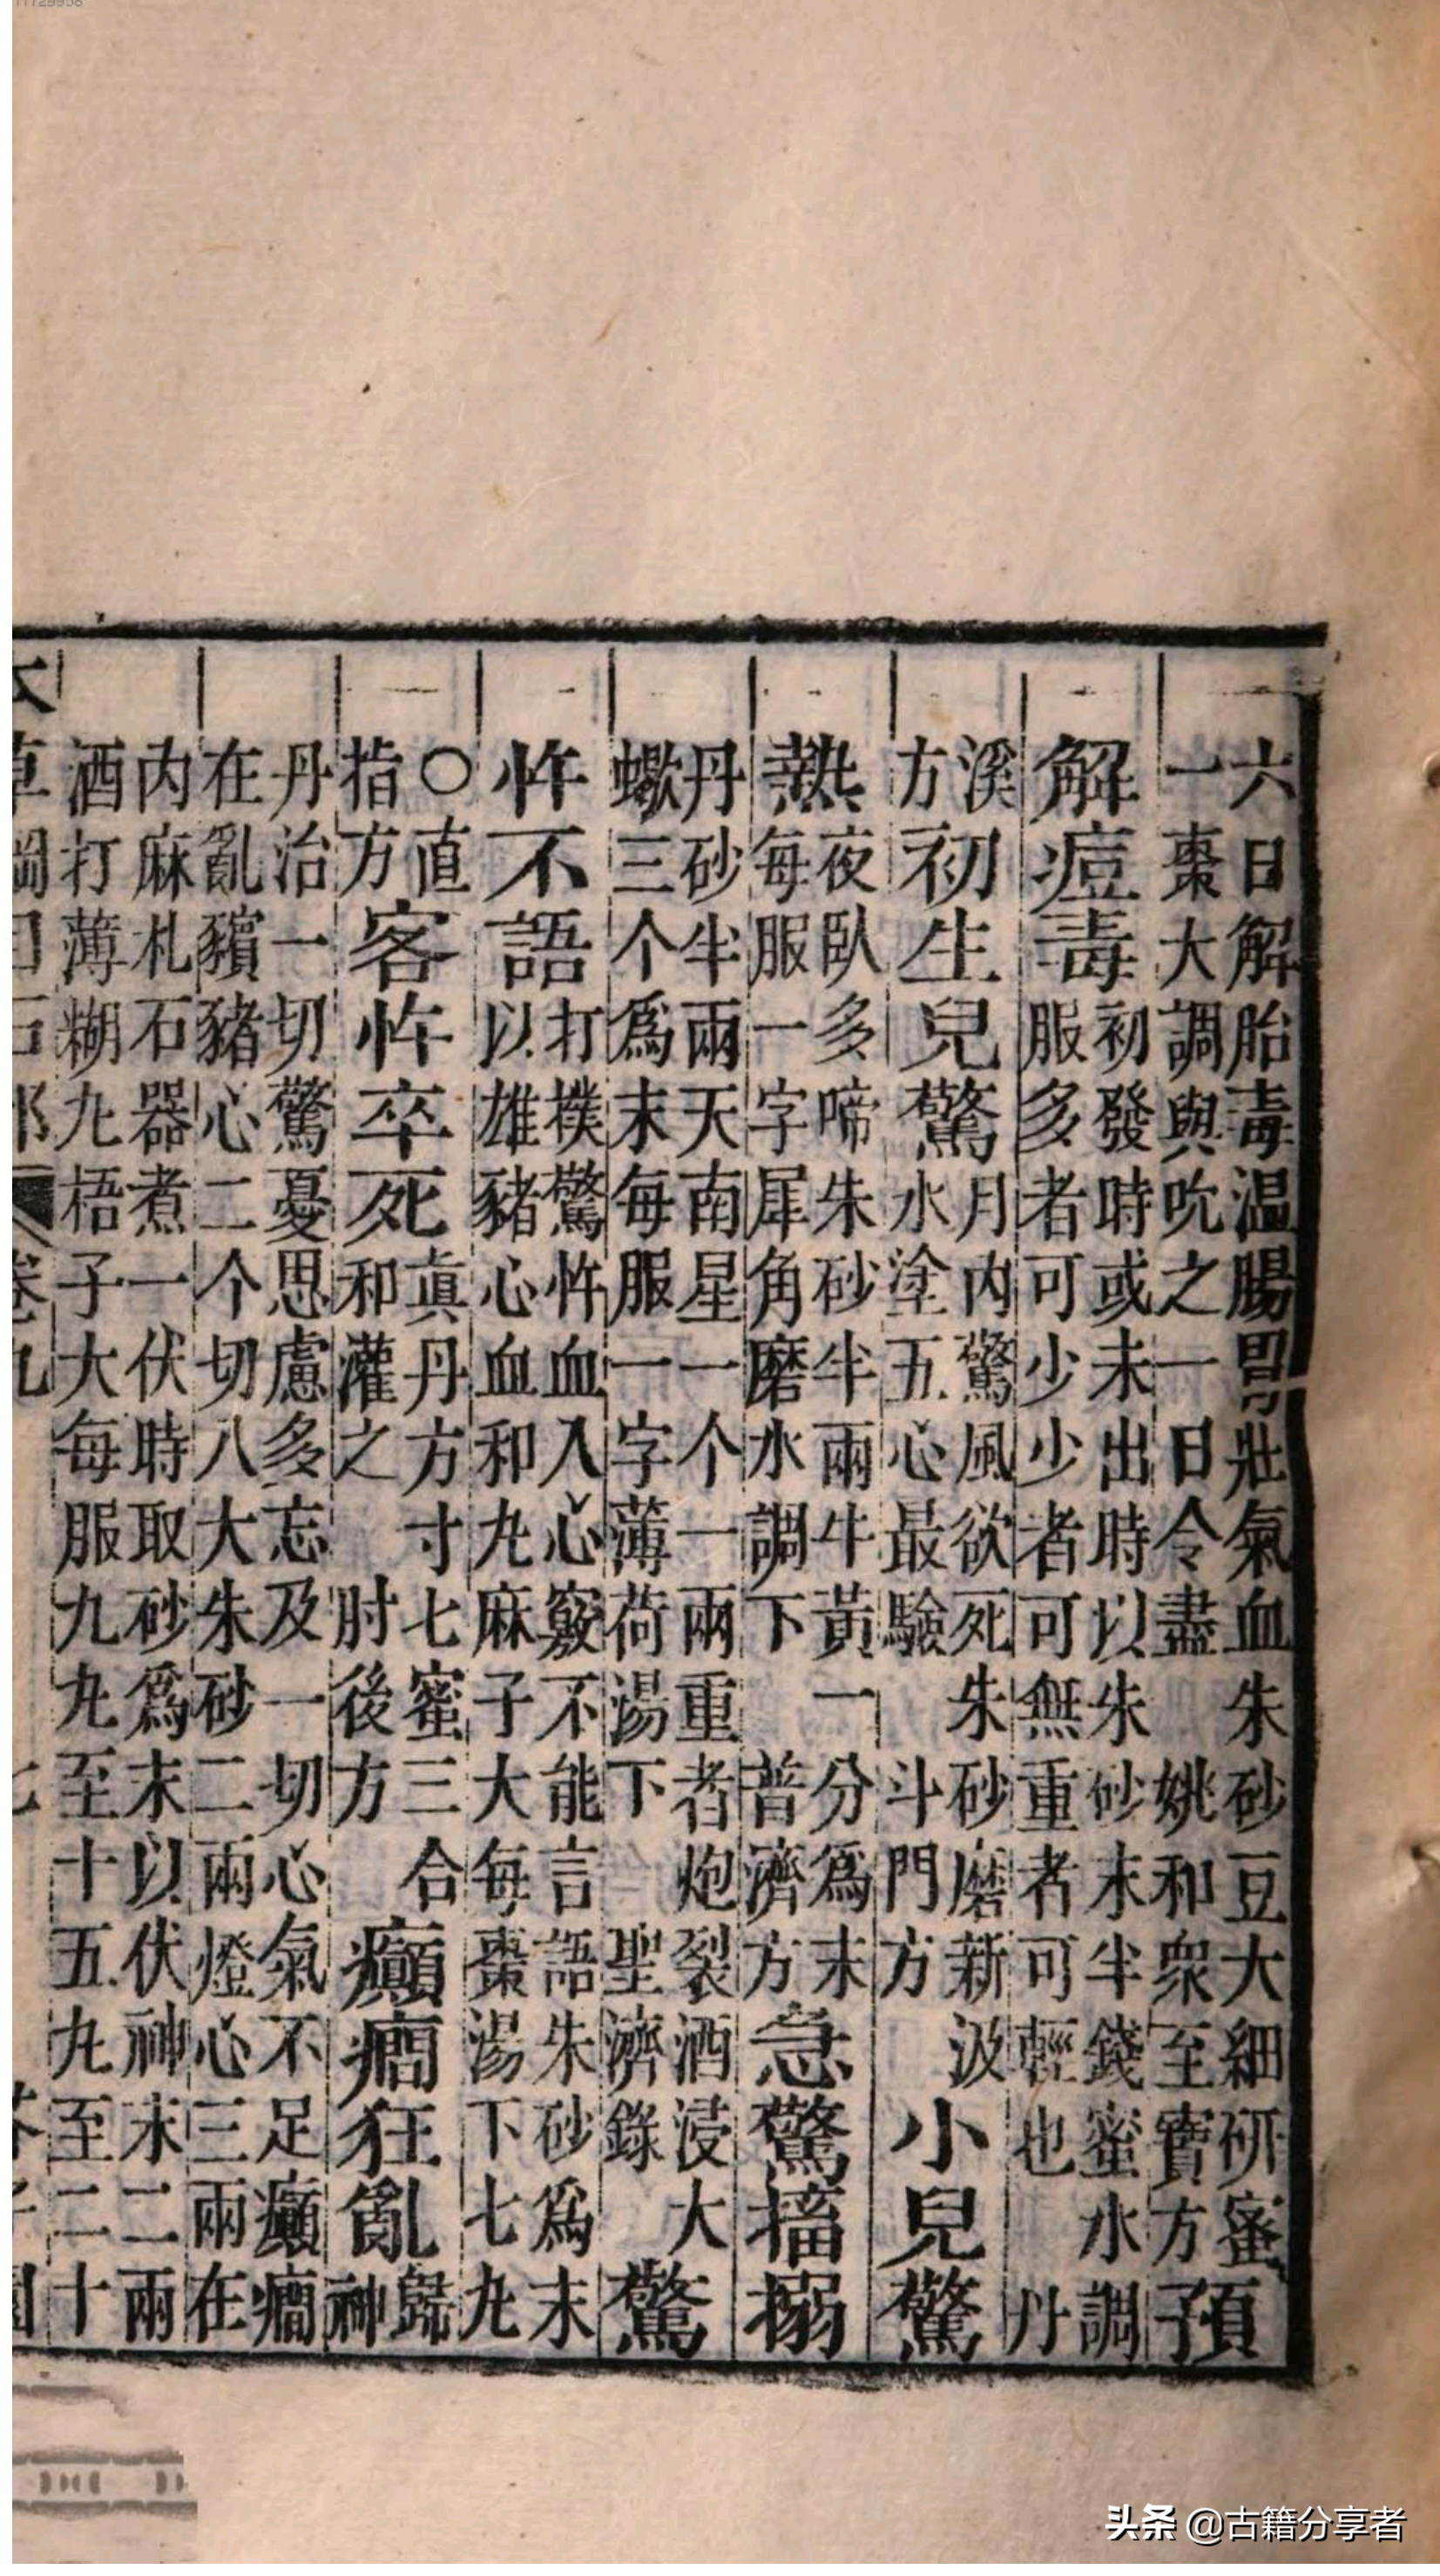 六日解胎毒温腸胃壯氣血朱砂豆大細研蜜
一棗大調與吮之一日令盡 姚和衆至寶方
預
解痘毒
初發時或未出時以朱砂末半錢蜜水調
服多者可少少者可無重者可輕也 丹
溪
方
初生兒驚
月内驚風欲死朱砂磨新汲
水塗五心最驗 斗門方
小兒驚
熱
夜臥多啼朱砂半兩牛黃一分爲末
每服一字犀角磨水調下 普濟方
急驚搐搦
丹砂半兩天南星一个一兩重者炮裂酒浸大
蠍三个爲末每服一字薄荷湯下 聖濟錄
驚
忤不語
打撲驚忤血入心竅不能言語朱砂爲末
以雄豬心血和丸麻子大每棗湯下七丸
○直
指方
客忤卒死
眞丹方寸七蜜三合
和灌之 肘後方
癲癇狂亂
歸
神
丹治一切驚憂思慮多忘及一切心氣不足癲癇
在亂豶豬心二个切八大朱砂二兩燈心三兩在
内麻札石器煮一伏時取砂爲末以伏神末二兩
酒打薄糊丸梧子大每服九丸至十五丸至二十
头条 @古籍分享者